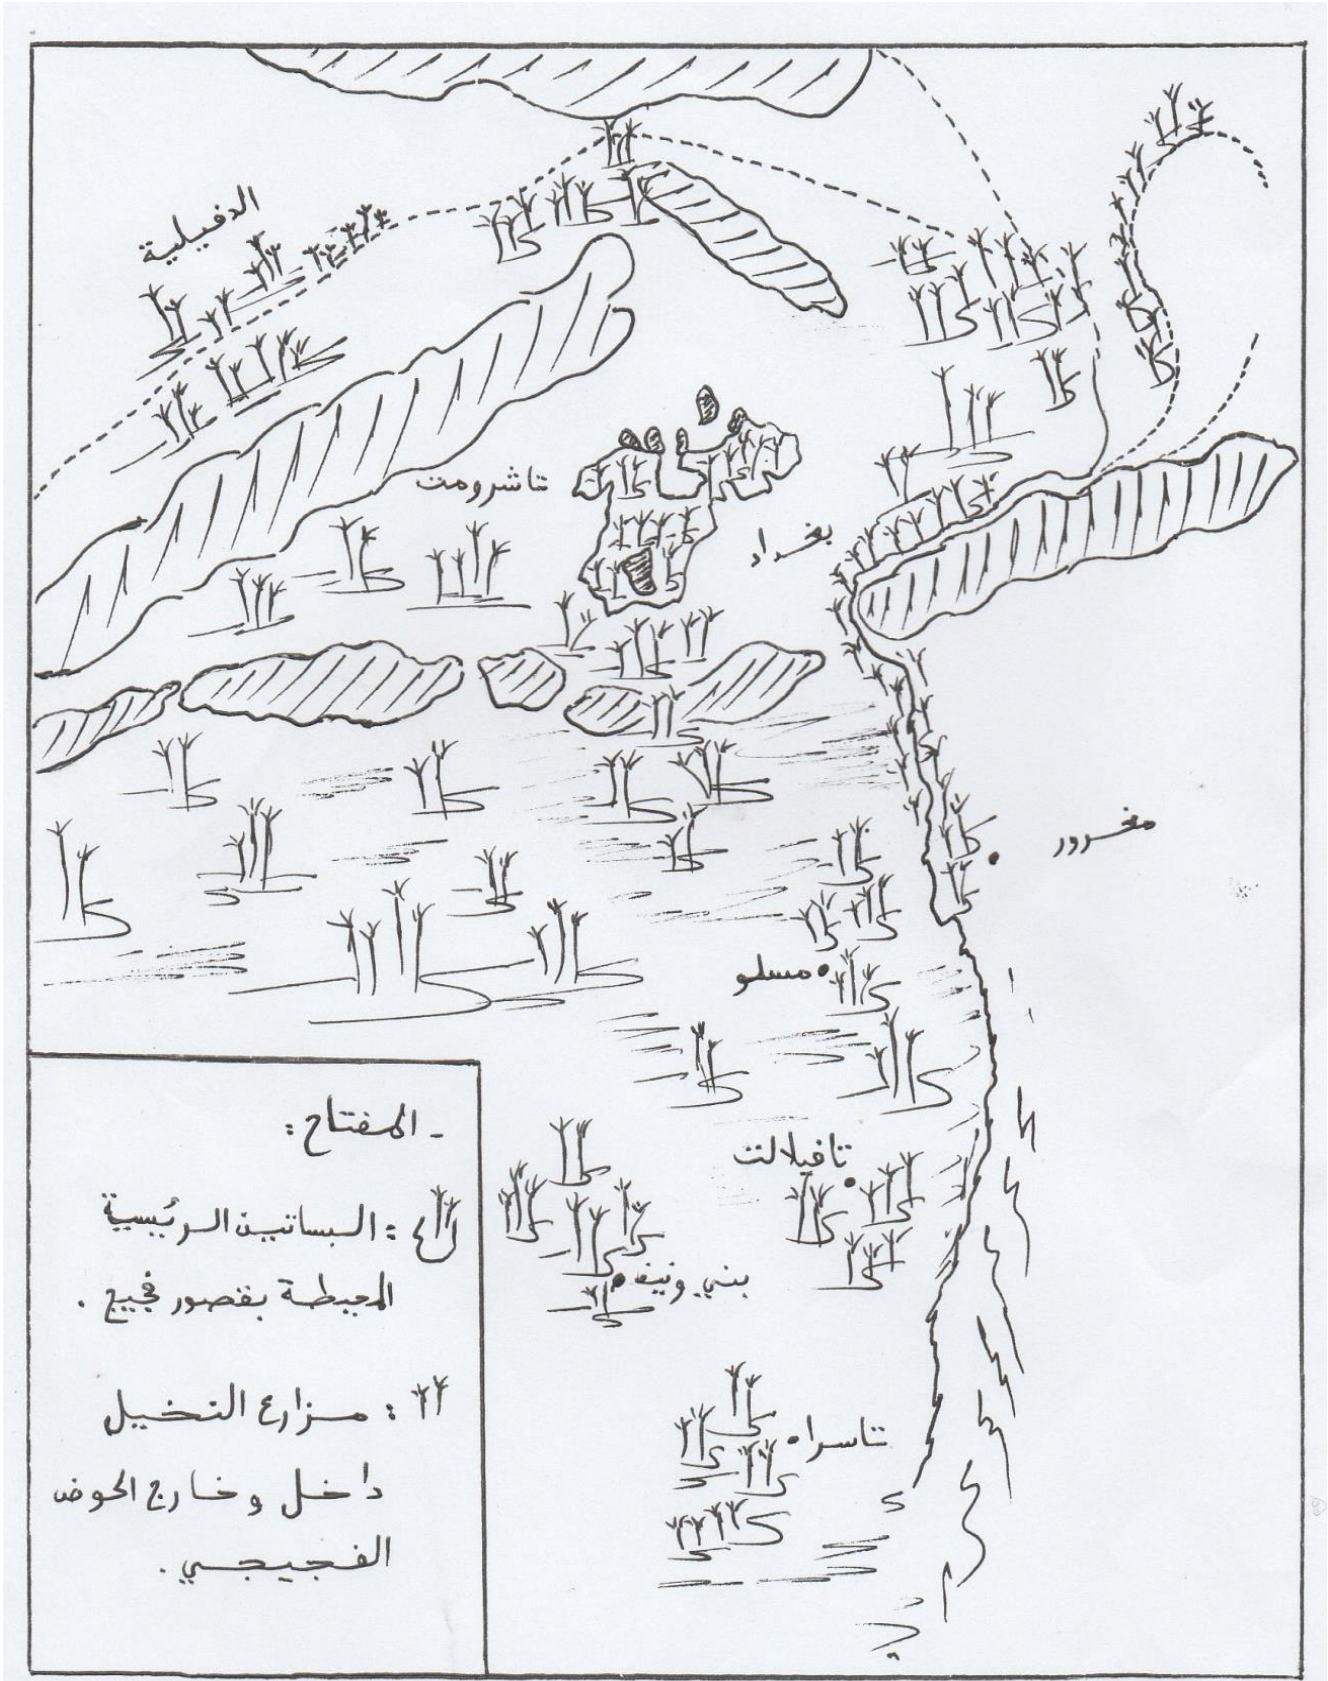 الدفيلية
تاشرومت
بغداد
مغرور
مسلو
تافيلالت
بني ونيف
تاسراه
- المفتاح :
: البساتين الرئيسية
المحيطة بقصور فجيج .
: مزارع النخيل
داخل وخارج الحوض
الفجيجي .